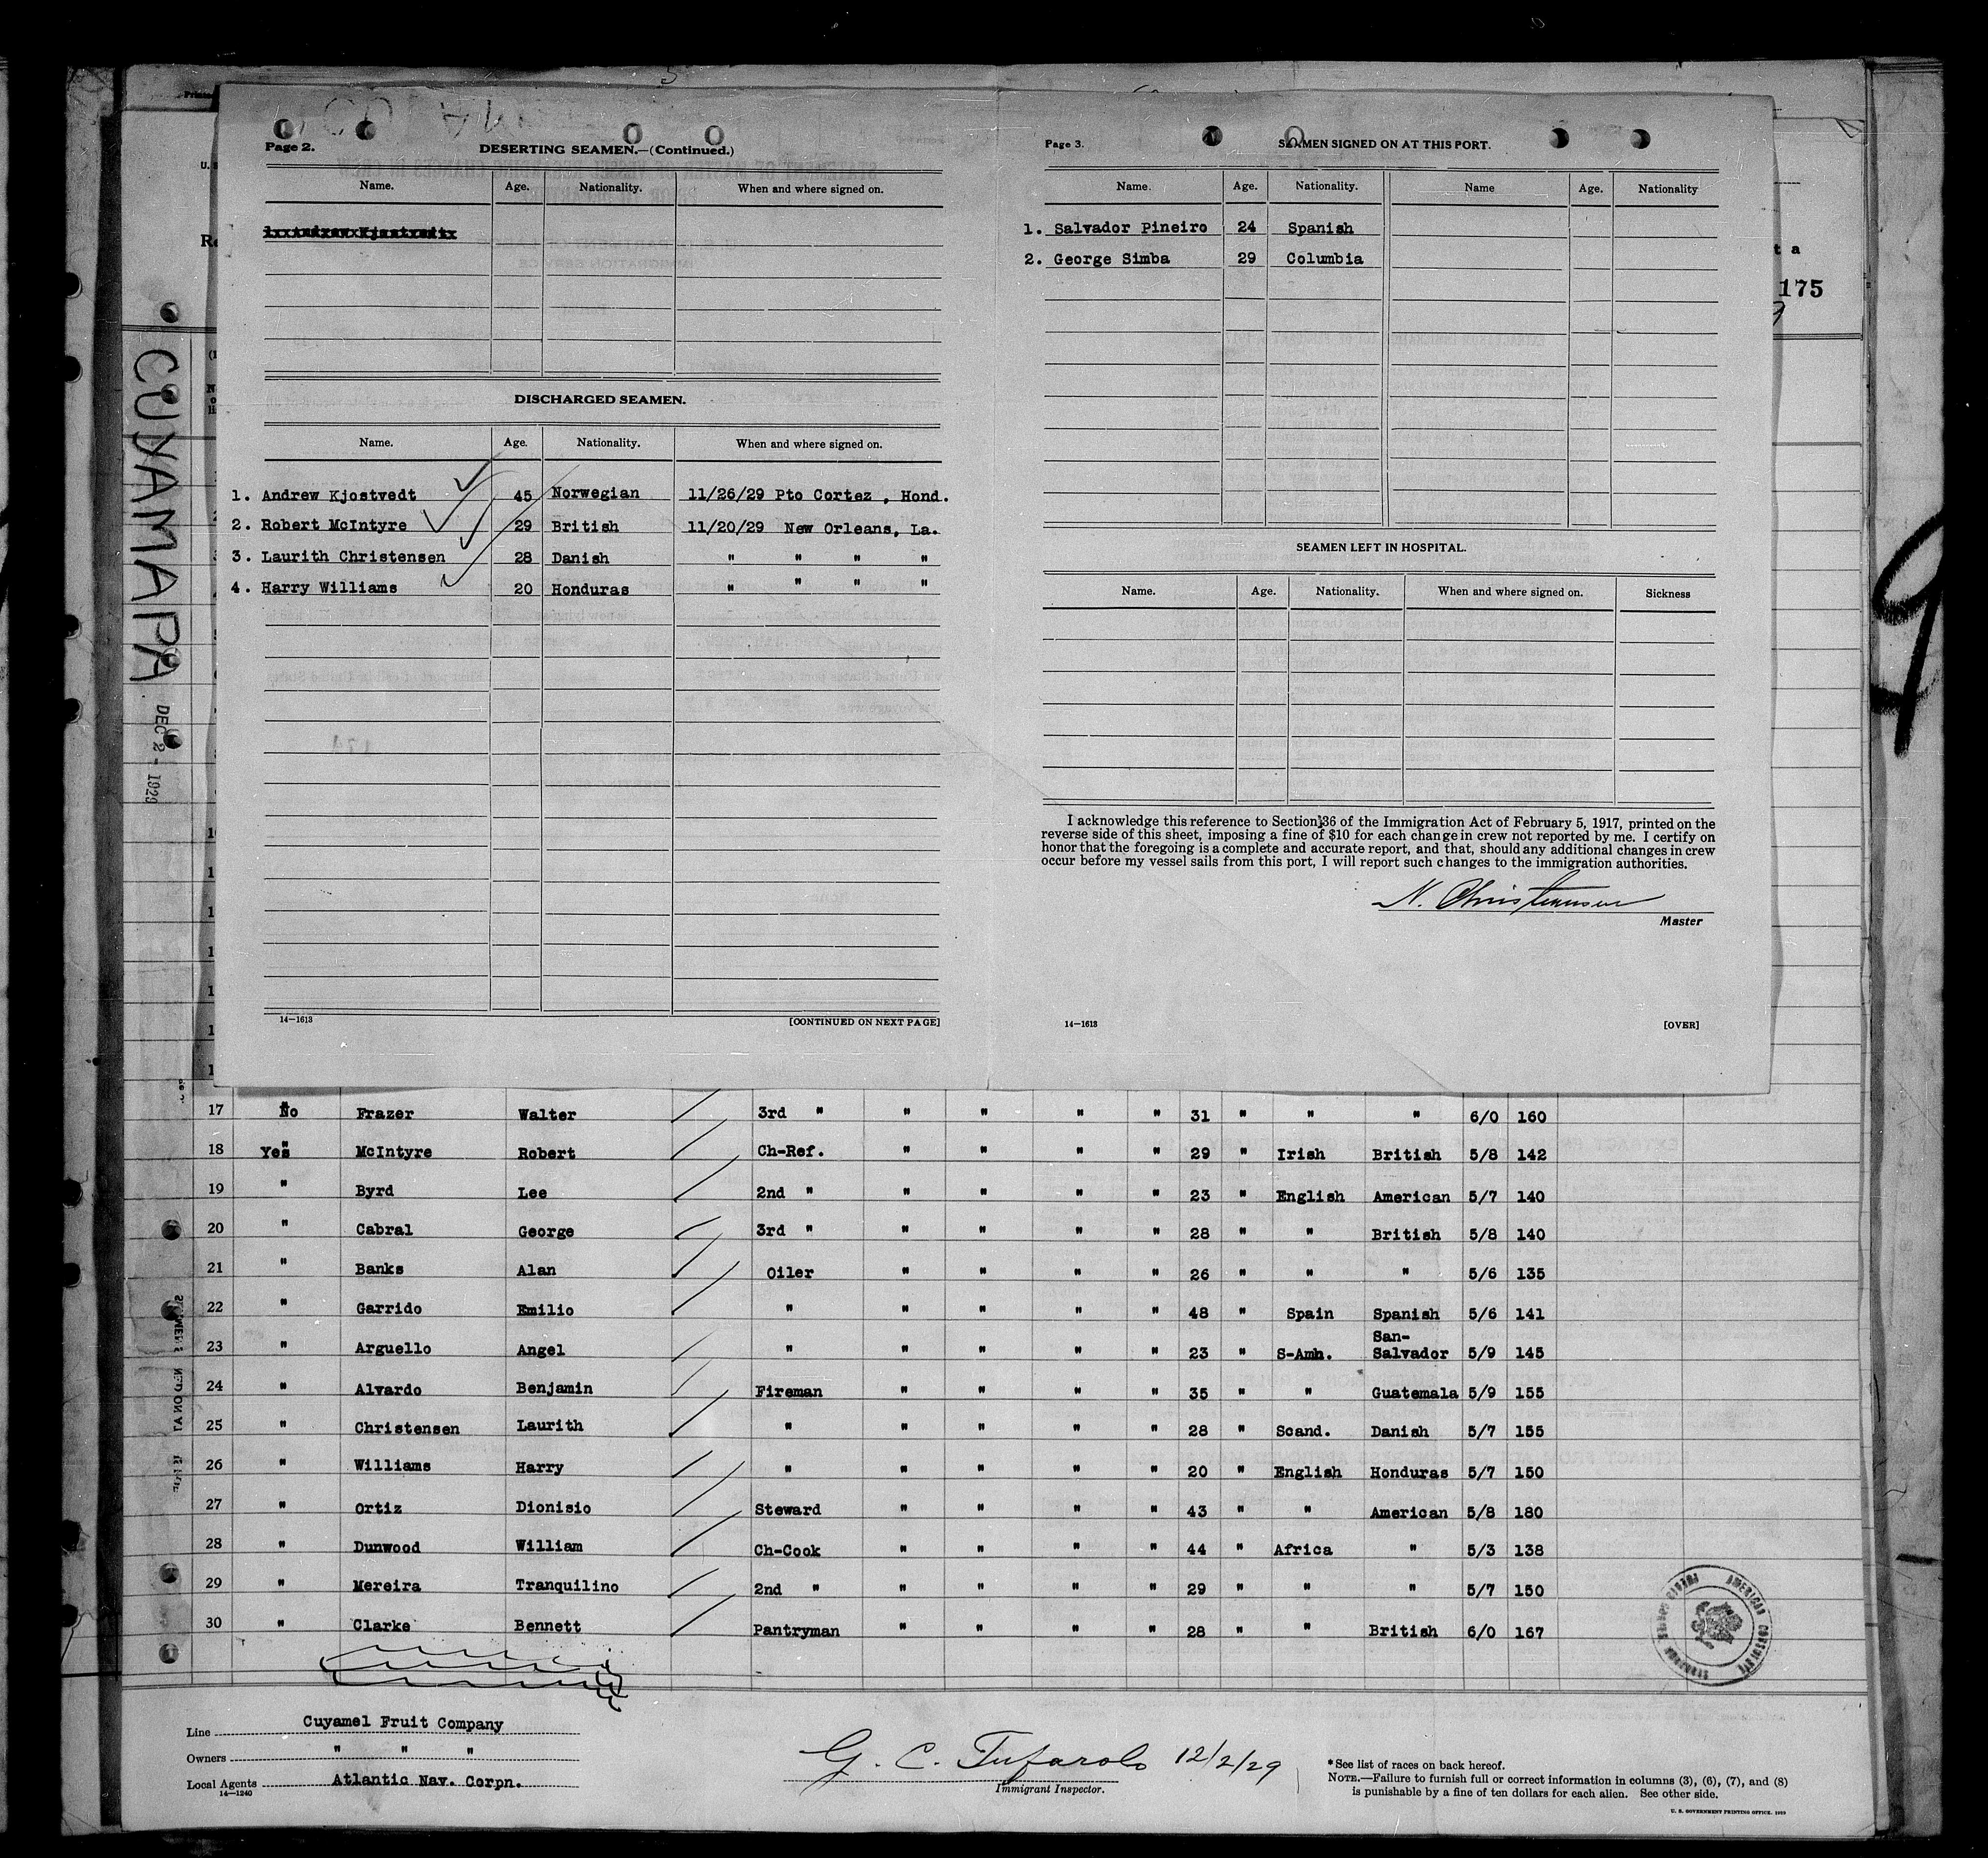 Page 2.
DESERTING SEAMEN.—(Continued.)
Name. Age. Nationality. When and where signed on.
DISCHARGED SEAMEN.
Name. Age. Nationality. When and where signed on.
1. Andrew Kjostvedt 45 Norwegian 11/26/29 Pto Cortez , Hond.
2. Robert McIntyre 29 British 11/20/29 New Orleans, La.
3. Laurith Christensen 28 Danish " " " "
4. Harry Williams 20 Honduras " " " "
14—1613 [CONTINUED ON NEXT PAGE]
Page 3.
SEAMEN SIGNED ON AT THIS PORT.
Name. Age. Nationality. Name Age. Nationality
1. Salvador Pineiro 24 Spanish
2. George Simba 29 Columbia
SEAMEN LEFT IN HOSPITAL.
Name. Age. Nationality. When and where signed on. Sickness
I acknowledge this reference to Section 36 of the Immigration Act of February 5, 1917, printed on the
reverse side of this sheet, imposing a fine of $10 for each change in crew not reported by me. I certify on
honor that the foregoing is a complete and accurate report, and that, should any additional changes in crew
occur before my vessel sails from this port, I will report such changes to the immigration authorities.
N. Christensen
Master
14—1613 [OVER]
CUYAMAPA
DEC 2 - 1929
175
9
17 No Frazer Walter 3rd " " " " " 31 " " " 6/0 160
18 Yes McIntyre Robert Ch-Ref. " " " " 29 " Irish British 5/8 142
19 " Byrd Lee 2nd " " " " " 23 " English American 5/7 140
20 " Cabral George 3rd " " " " " 28 " " British 5/8 140
21 " Banks Alan Oiler " " " " 26 " " " 5/6 135
22 " Garrido Emilio " " " " " 48 " Spain Spanish 5/6 141
23 " Arguello Angel " " " " " 23 " S-Amh. San-Salvador 5/9 145
24 " Alvardo Benjamin Fireman " " " " 35 " " Guatemala 5/9 155
25 " Christensen Laurith " " " " " 28 " Scand. Danish 5/7 155
26 " Williams Harry " " " " " 20 " English Honduras 5/7 150
27 " Ortiz Dionisio Steward " " " " 43 " " American 5/8 180
28 " Dunwood William Ch-Cook " " " " 44 " Africa " 5/3 138
29 " Mereira Tranquilino 2nd " " " " " 29 " " " 5/7 150
30 " Clarke Bennett Pantryman " " " " 28 " " British 6/0 167
AMERICAN CONSULATE
Line Cuyamel Fruit Company
Owners " " "
Local Agents Atlantic Nav. Corpn.
14—1240
G. C. Tufarolo 12/2/29
Immigrant Inspector.
* See list of races on back hereof.
NOTE.—Failure to furnish full or correct information in columns (3), (6), (7), and (8)
is punishable by a fine of ten dollars for each alien. See other side.
U. S. GOVERNMENT PRINTING OFFICE. 1929